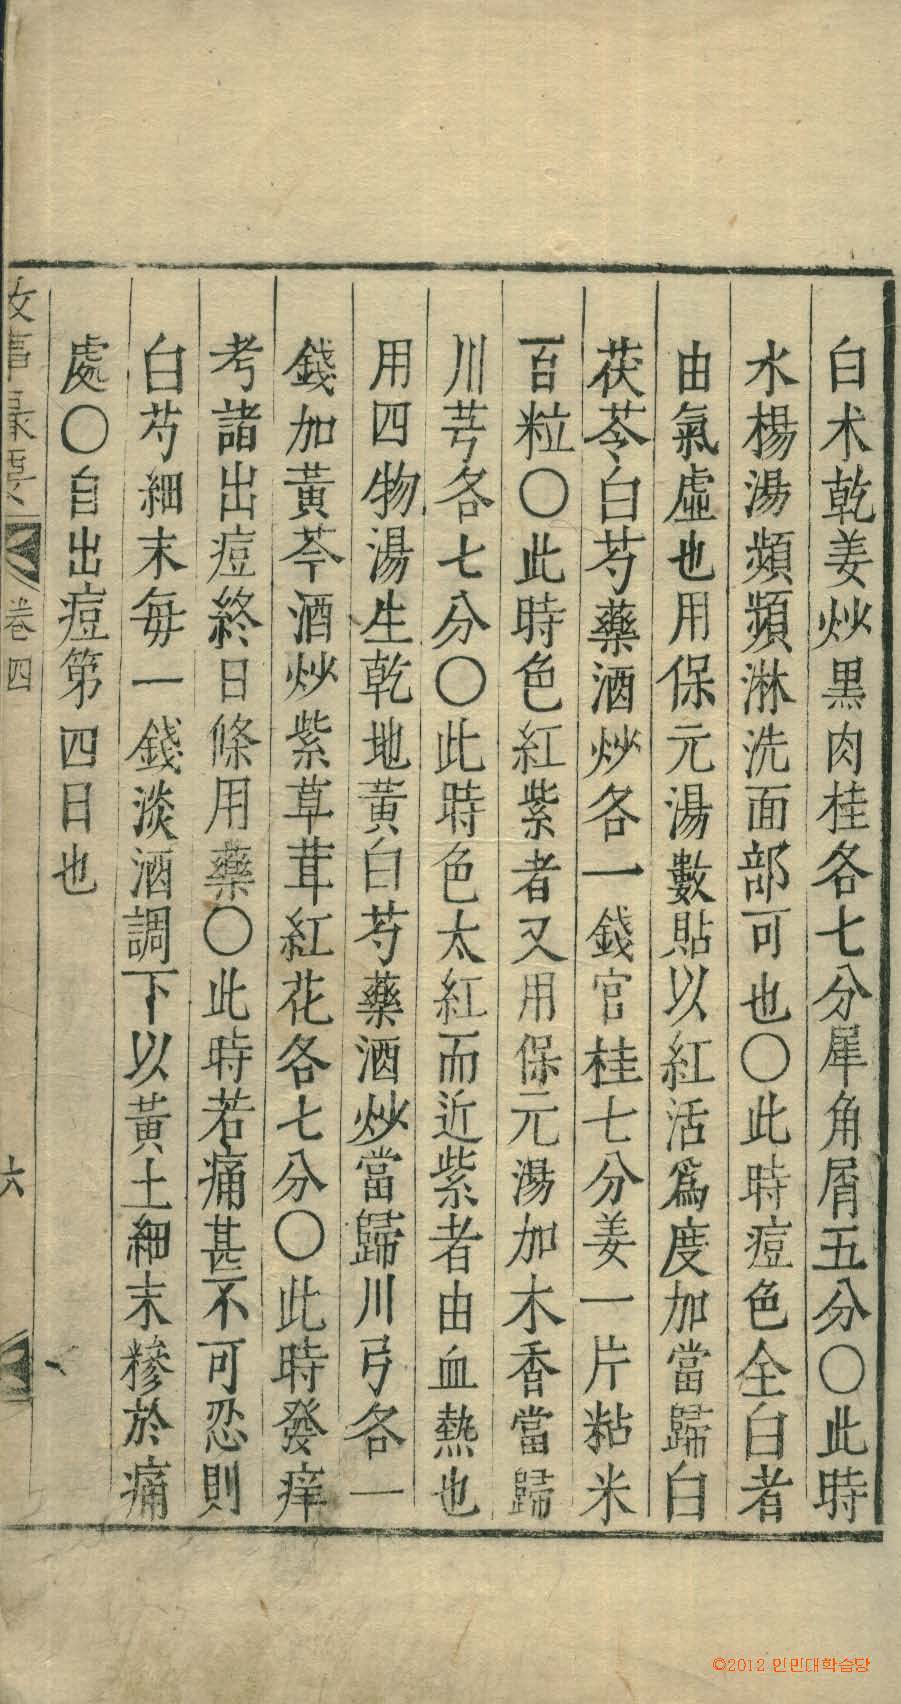 白术乾姜炒黑肉桂各七分犀角屑五分〇此時
水楊湯頻頻淋洗面部可也〇此時痘色全白者
由氣虛也用保元湯數貼以紅活爲度加當歸白
茯苓白芍藥酒炒各一錢官桂七分姜一片粘米
百粒〇此時色紅紫者又用保元湯加木香當歸
川芎各七分〇此時色太紅而近紫者由血熱也
用四物湯生乾地黃白芍藥酒炒當歸川弓各一
錢加黃芩酒炒紫草茸紅花各七分〇此時發痒
考諸出痘終日條用藥〇此時若痛甚不可忍則
白芍細末每一錢淡酒調下以黃土細末糝於痛
處〇自出痘第四日也
攷事最要 卷四 六
©2012 인민대학습당